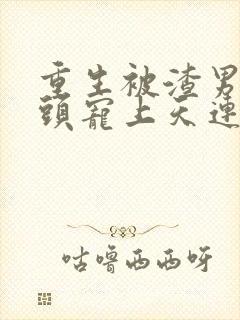 重生被渣男
頭寵上天連
咕噜西西呀